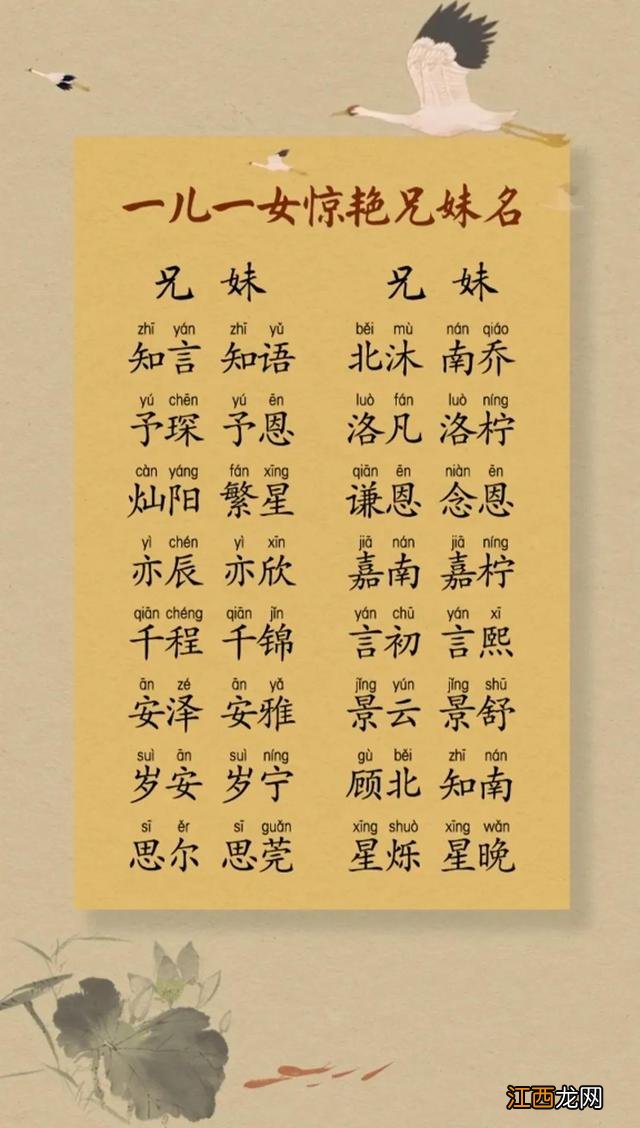 一儿一女惊艳兄妹名
兄 妹 兄 妹
zhī yán zhī yǔ běi mù nán qiáo
知言 知语 北沐 南乔
yú chēn yú ēn luò fán luò níng
予琛 予恩 洛凡 洛柠
càn yáng fán xīng qiān ēn niàn ēn
灿阳 繁星 谦恩 念恩
yì chén yì xīn jiā nán jiā níng
亦辰 亦欣 嘉南 嘉柠
qiān chéng qiān jǐn yán chū yán xī
千程 千锦 言初 言熙
ān zé ān yǎ jǐng yún jǐng shū
安泽 安雅 景云 景舒
suì ān suì níng gù běi zhī nán
岁安 岁宁 顾北 知南
sī ěr sī guǎn xīng shuò xīng wǎn
思尔 思莞 星烁 星晚
江西龙网